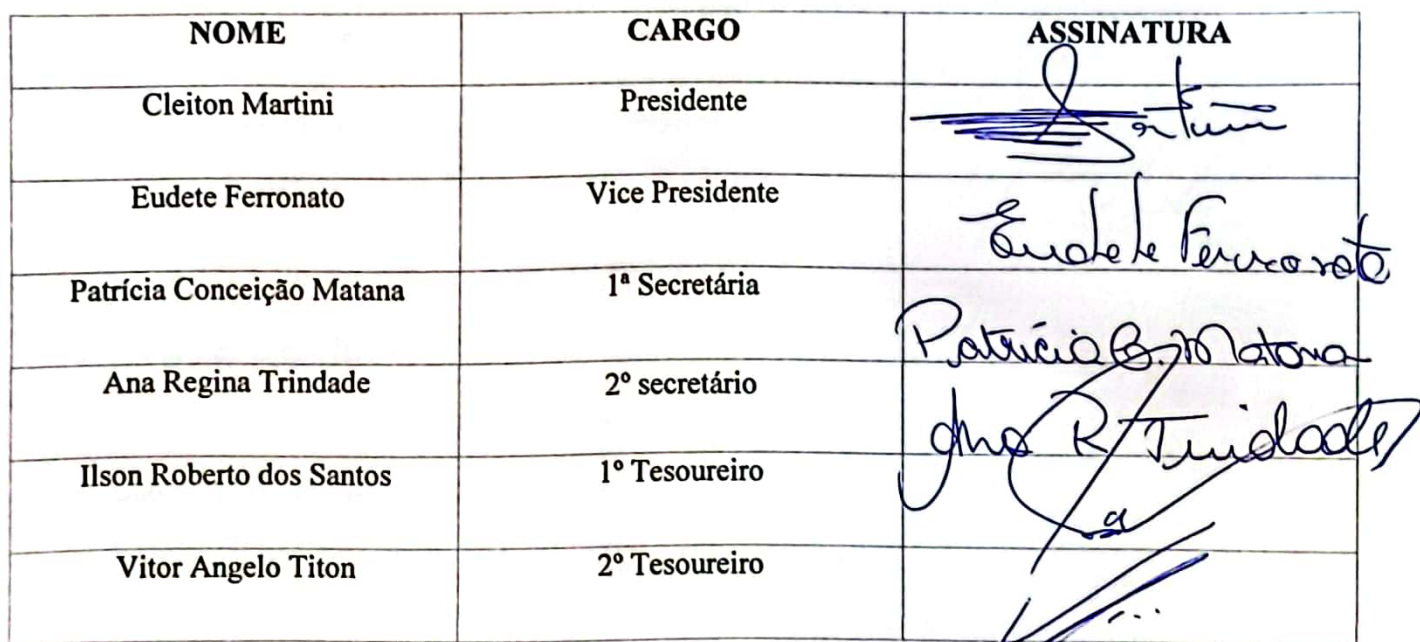 NOME CARGO ASSINATURA
Cleiton Martini Presidente
Eudete Ferronato Vice Presidente Eudete Ferronato
Patrícia Conceição Matana 1ª Secretária Patricia C. Matana
Ana Regina Trindade 2º secretário Ana R Trindade
Ilson Roberto dos Santos 1º Tesoureiro
Vitor Angelo Titon 2º Tesoureiro